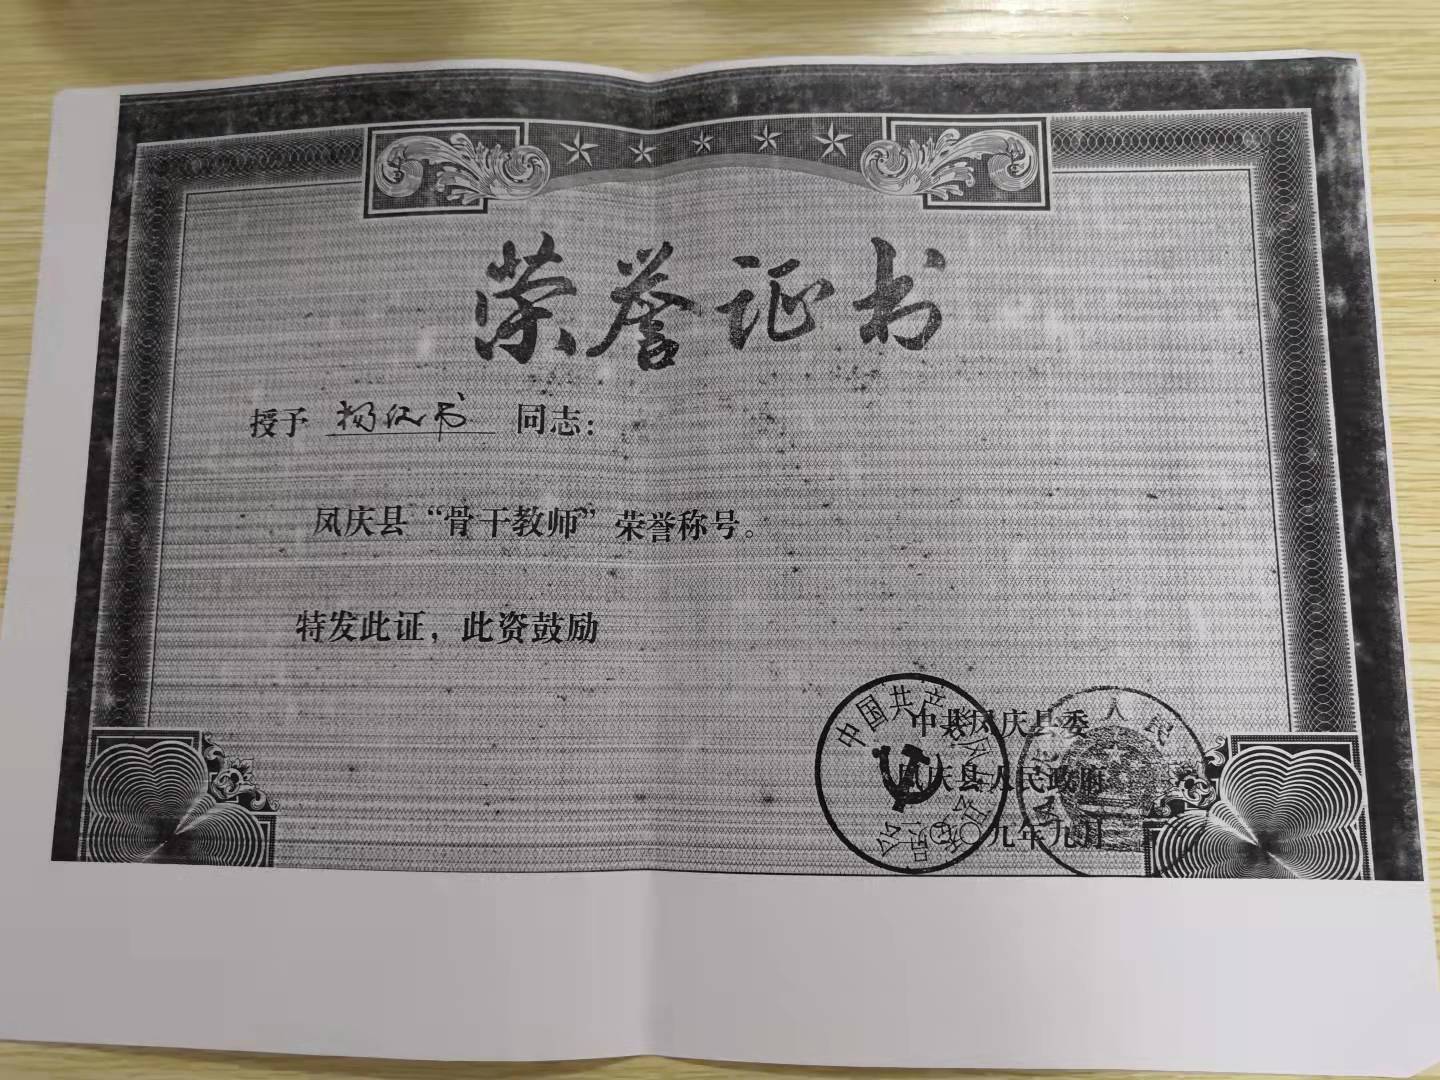 荣誉证书
授予 杨仅书 同志：
凤庆县“骨干教师”荣誉称号。
特发此证，此资鼓励
中共凤庆县委
凤庆县人民政府
九年九月
中国共产党
人民